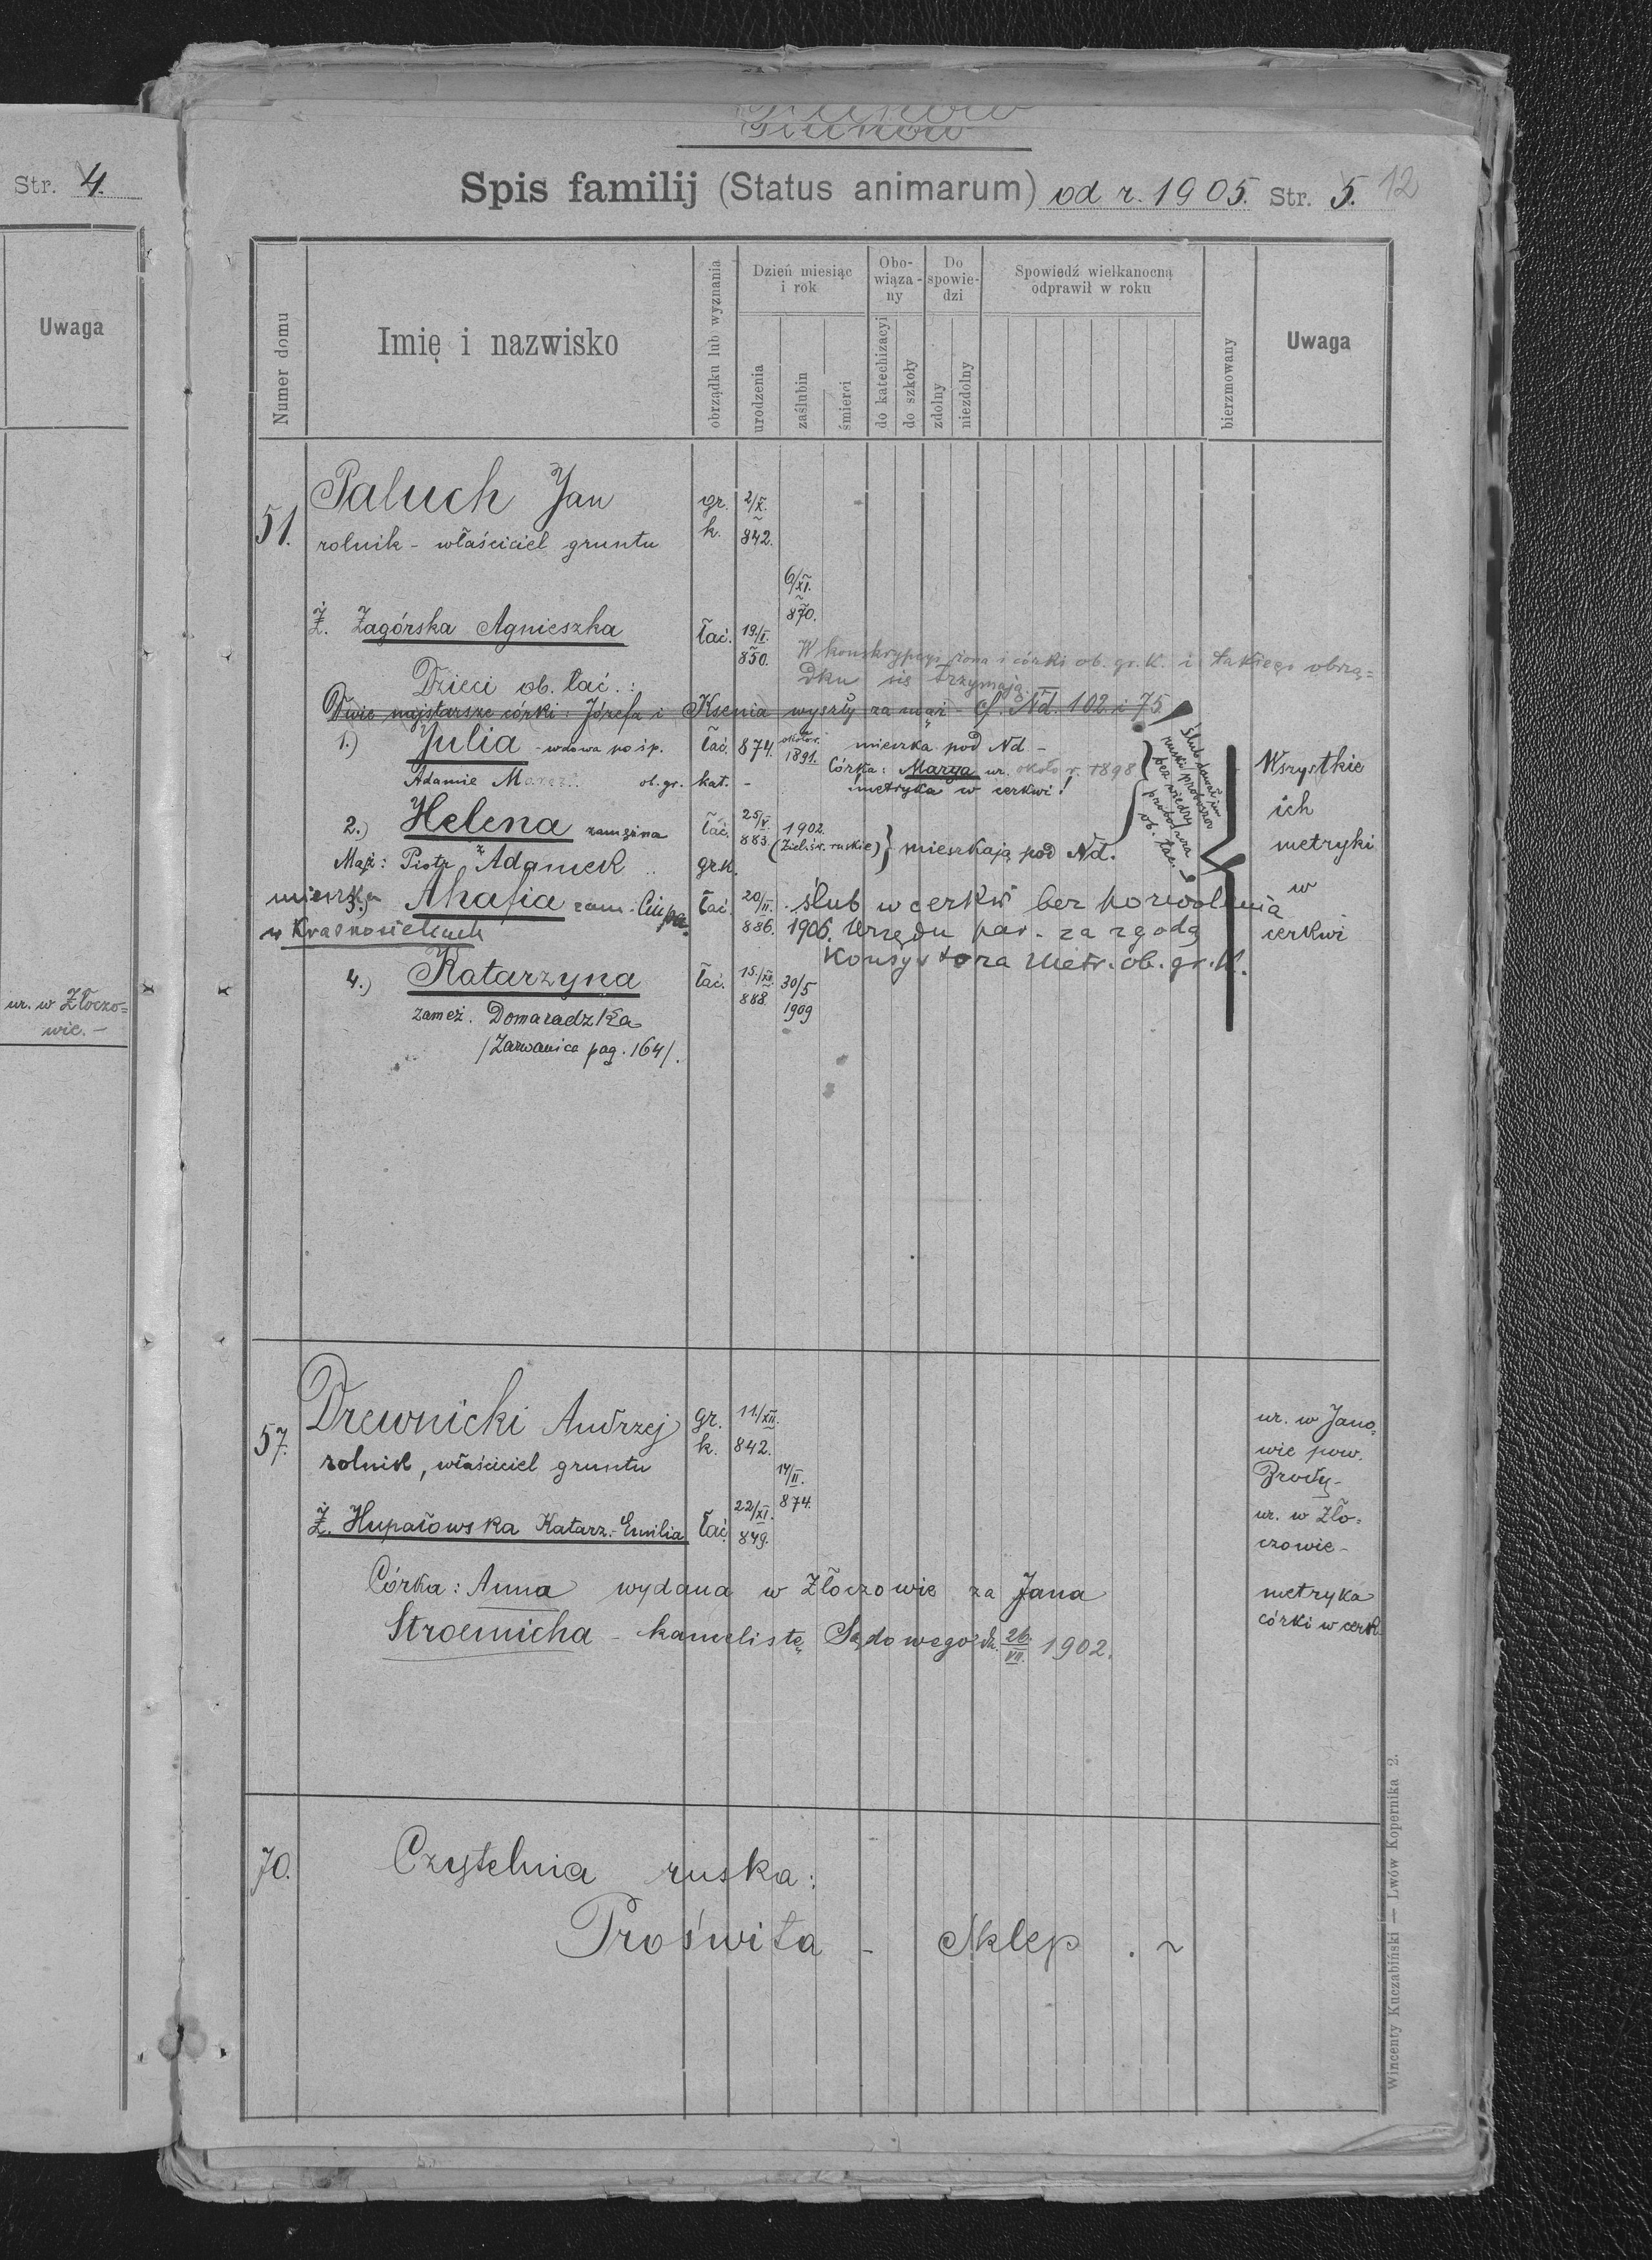 Str. 4.
Uwaga
ur. w Złoczo=
wie. -
Spis familij (Status animarum) od r. 1905. Str. 5. 12
Numer domu
Imię i nazwisko
obrządku lub wyznania
Dzień miesiąc i rok
urodzenia
zaślubin
śmierci
Obo-wiąza-ny
do katechizacyi
do szkoły
Do spowie-dzi
zdolny
niezdolny
Spowiedź wielkanocną odprawił w roku
bierzmowany
Uwaga
51. Paluch Jan gr. k. 2/X. 842.
rolnik - właściciel gruntu
6/XI. 870.
Ż. Zagórska Agnieszka łać. 19/I. 850.
W konskrypcyi żona i córki ob. gr. k. i takiego obrzą=
dku się trzymają.
Dzieci ob. łać.:
Dwie najstarsze córki: Józefa i Ksenia wyszły za mąż - cf. Nd. 102 i 75.
1.) Julia - wdowa po śp. łać. 874. około r. 1891. mieszka pod Nd -
Adamie ob. gr. kat. -
Córka: Marya ur. około r. 1898
metryka w cerkwi!
2.) Helena zamężna łać. 25/V. 883. 1902. (Zieliśw. ruskie) } mieszkają pod Nd.
Mąż: Piotr Adamek gr.k.
Ślub dawał im
ruski proboszcz
bez wiedzy
proboszcza
ob. łac.
3.) Ahafia zam: Ciupa. łać. 20/II. 886. 1906. ślub w cerkwi bez pozwolenia
mieszka
w Krasnosielcach
urzędu par. za zgodą
Konsystorza Metr. ob. gr. k.
4.) Katarzyna łać. 15/XII. 888. 30/5 1909
zamęż. Domaradzka
/Zarwanica pag. 164/.
Wszystkie
ich
metryki
w
cerkwi
57. Drewnicki Andrzej gr. k. 11/XII. 842. ur. w Jano=
wie pow.
Brody -
rolnik, właściciel gruntu
17/II. 874.
Ż. Hupałowska Katarz.- Emilia łać. 22/XI. 849. ur. w Zło=
czowie -
Córka: Anna wydana w Złoczowie za Jana
Stroemicha - kancelistę Sądowego dn. 26/VII. 1902.
metryka
córki w cerk.
70. Czytelnia ruska:
Proświta - Sklep . ~
Wincenty Kuczabiński — Lwów Kopernika 2.